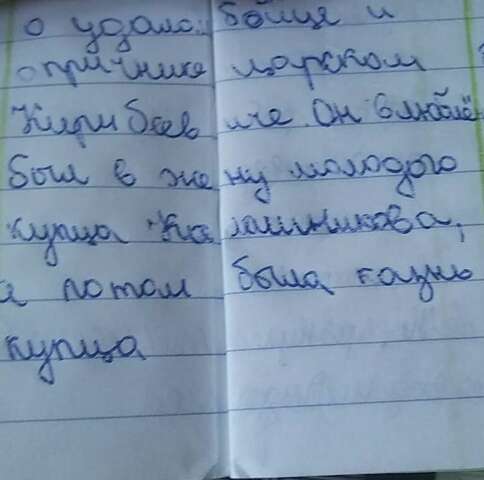 о удалом бойце и
опричнике царском
Кирибеевиче. Он влюблё
был в жену молодого
купца Калашникова,
и потом была казнь
купца